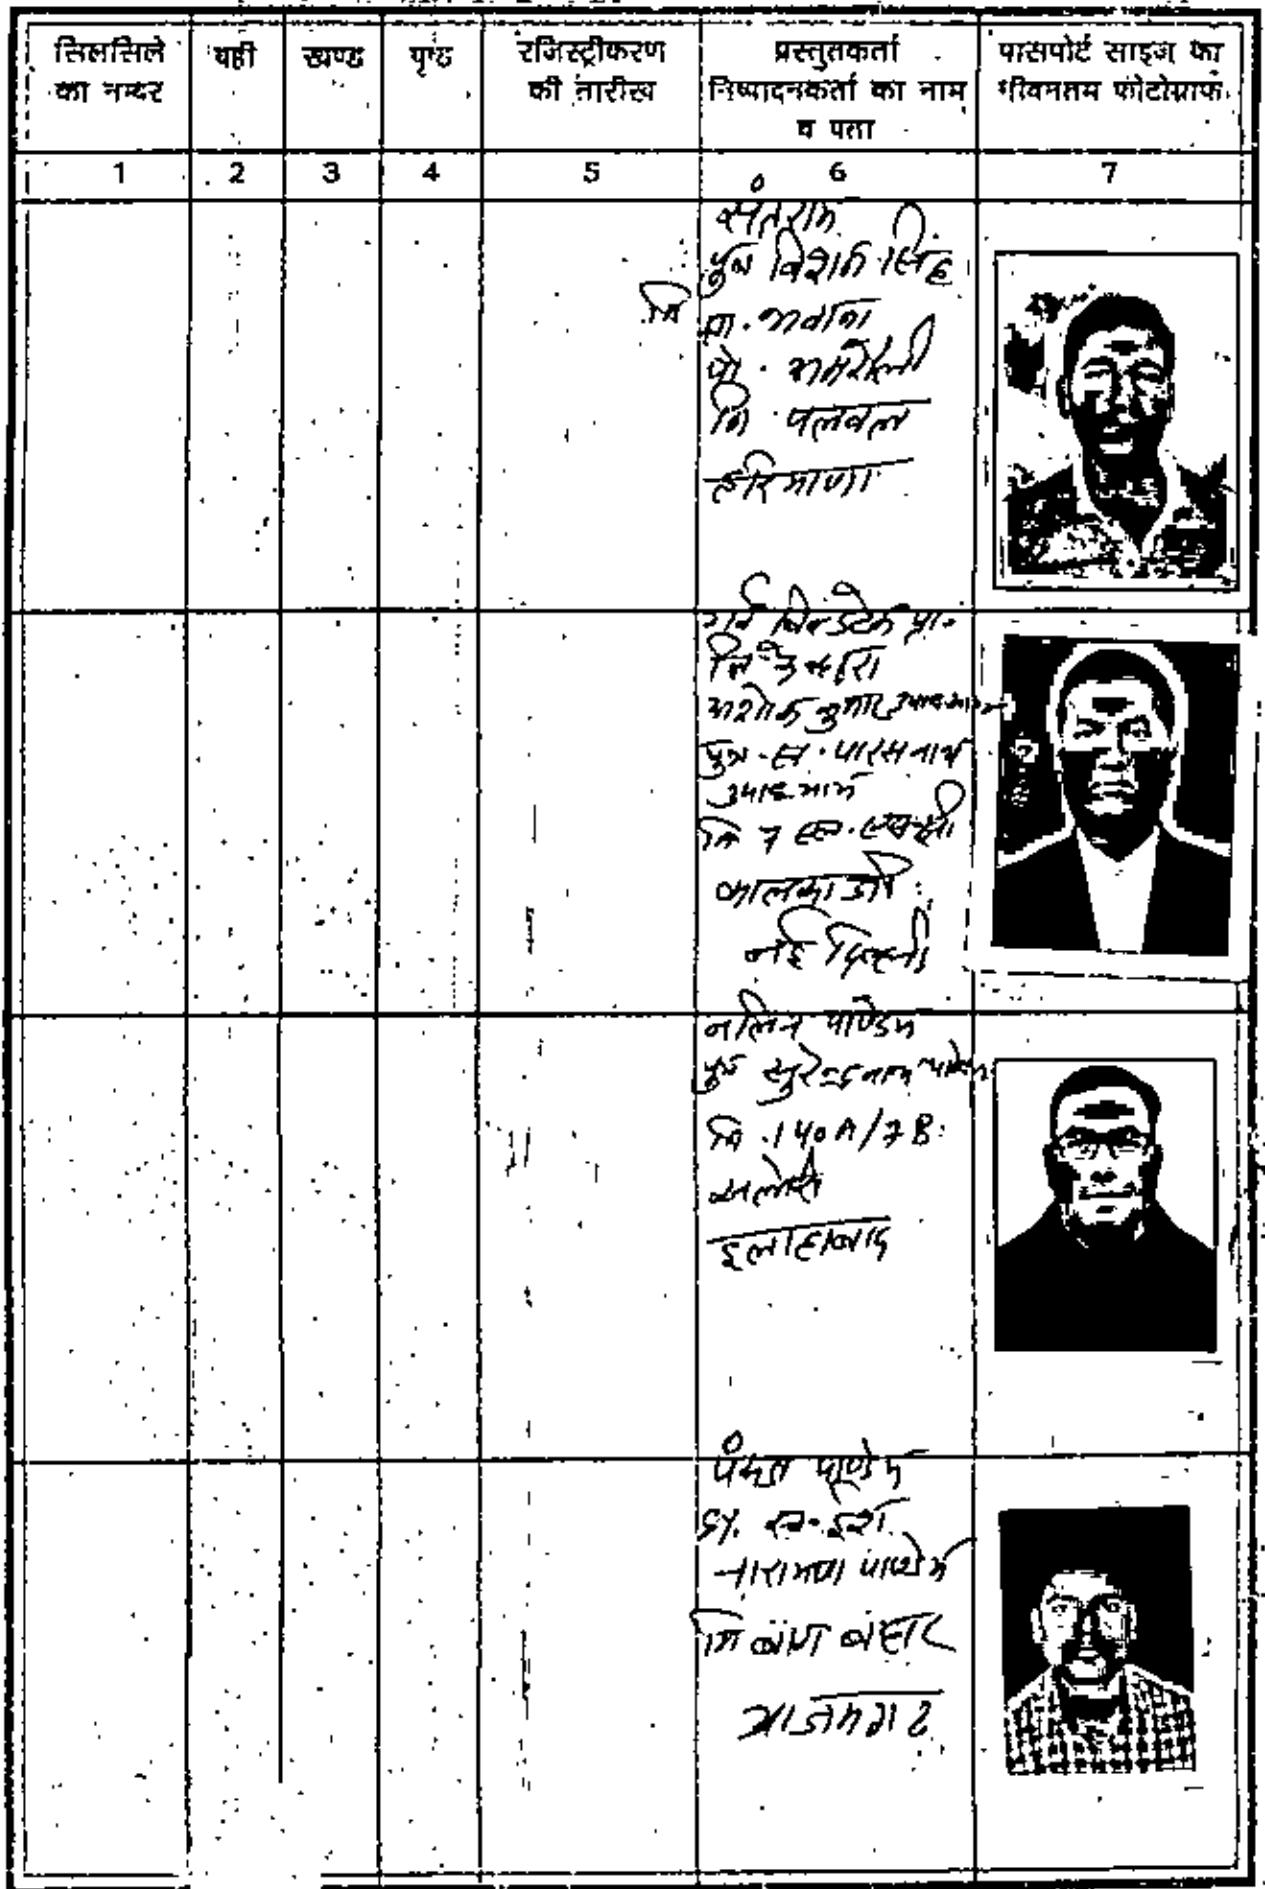 सिलसिले का नम्बर
वही
खण्ड
पृष्ठ
रजिस्ट्रीकरण की तारीख
प्रस्तुतकर्ता निष्पादनकर्ता का नाम व पता
पासपोर्ट साइज का नवीनतम फोटोग्राफ
1 2 3 4 5 6 7
संतराम
पुत्र सिंह
नि ग्रा.
पो.
जि पलवल
हरियाणा
प्रा.
लि द्वारा
अशोक कुमार उपाध्याय
पुत्र स्व. पारसनाथ
उपाध्याय
नि 7
कालकाजी
नई दिल्ली
नलिन पाण्डेय
पुत्र सुरेन्द्रनाथ पाण्डेय
नि. 140A/7B
इलाहाबाद
पंकज पाण्डेय
S/. स्व.
नारायण पाण्डेय
नि बाग
आजमगढ